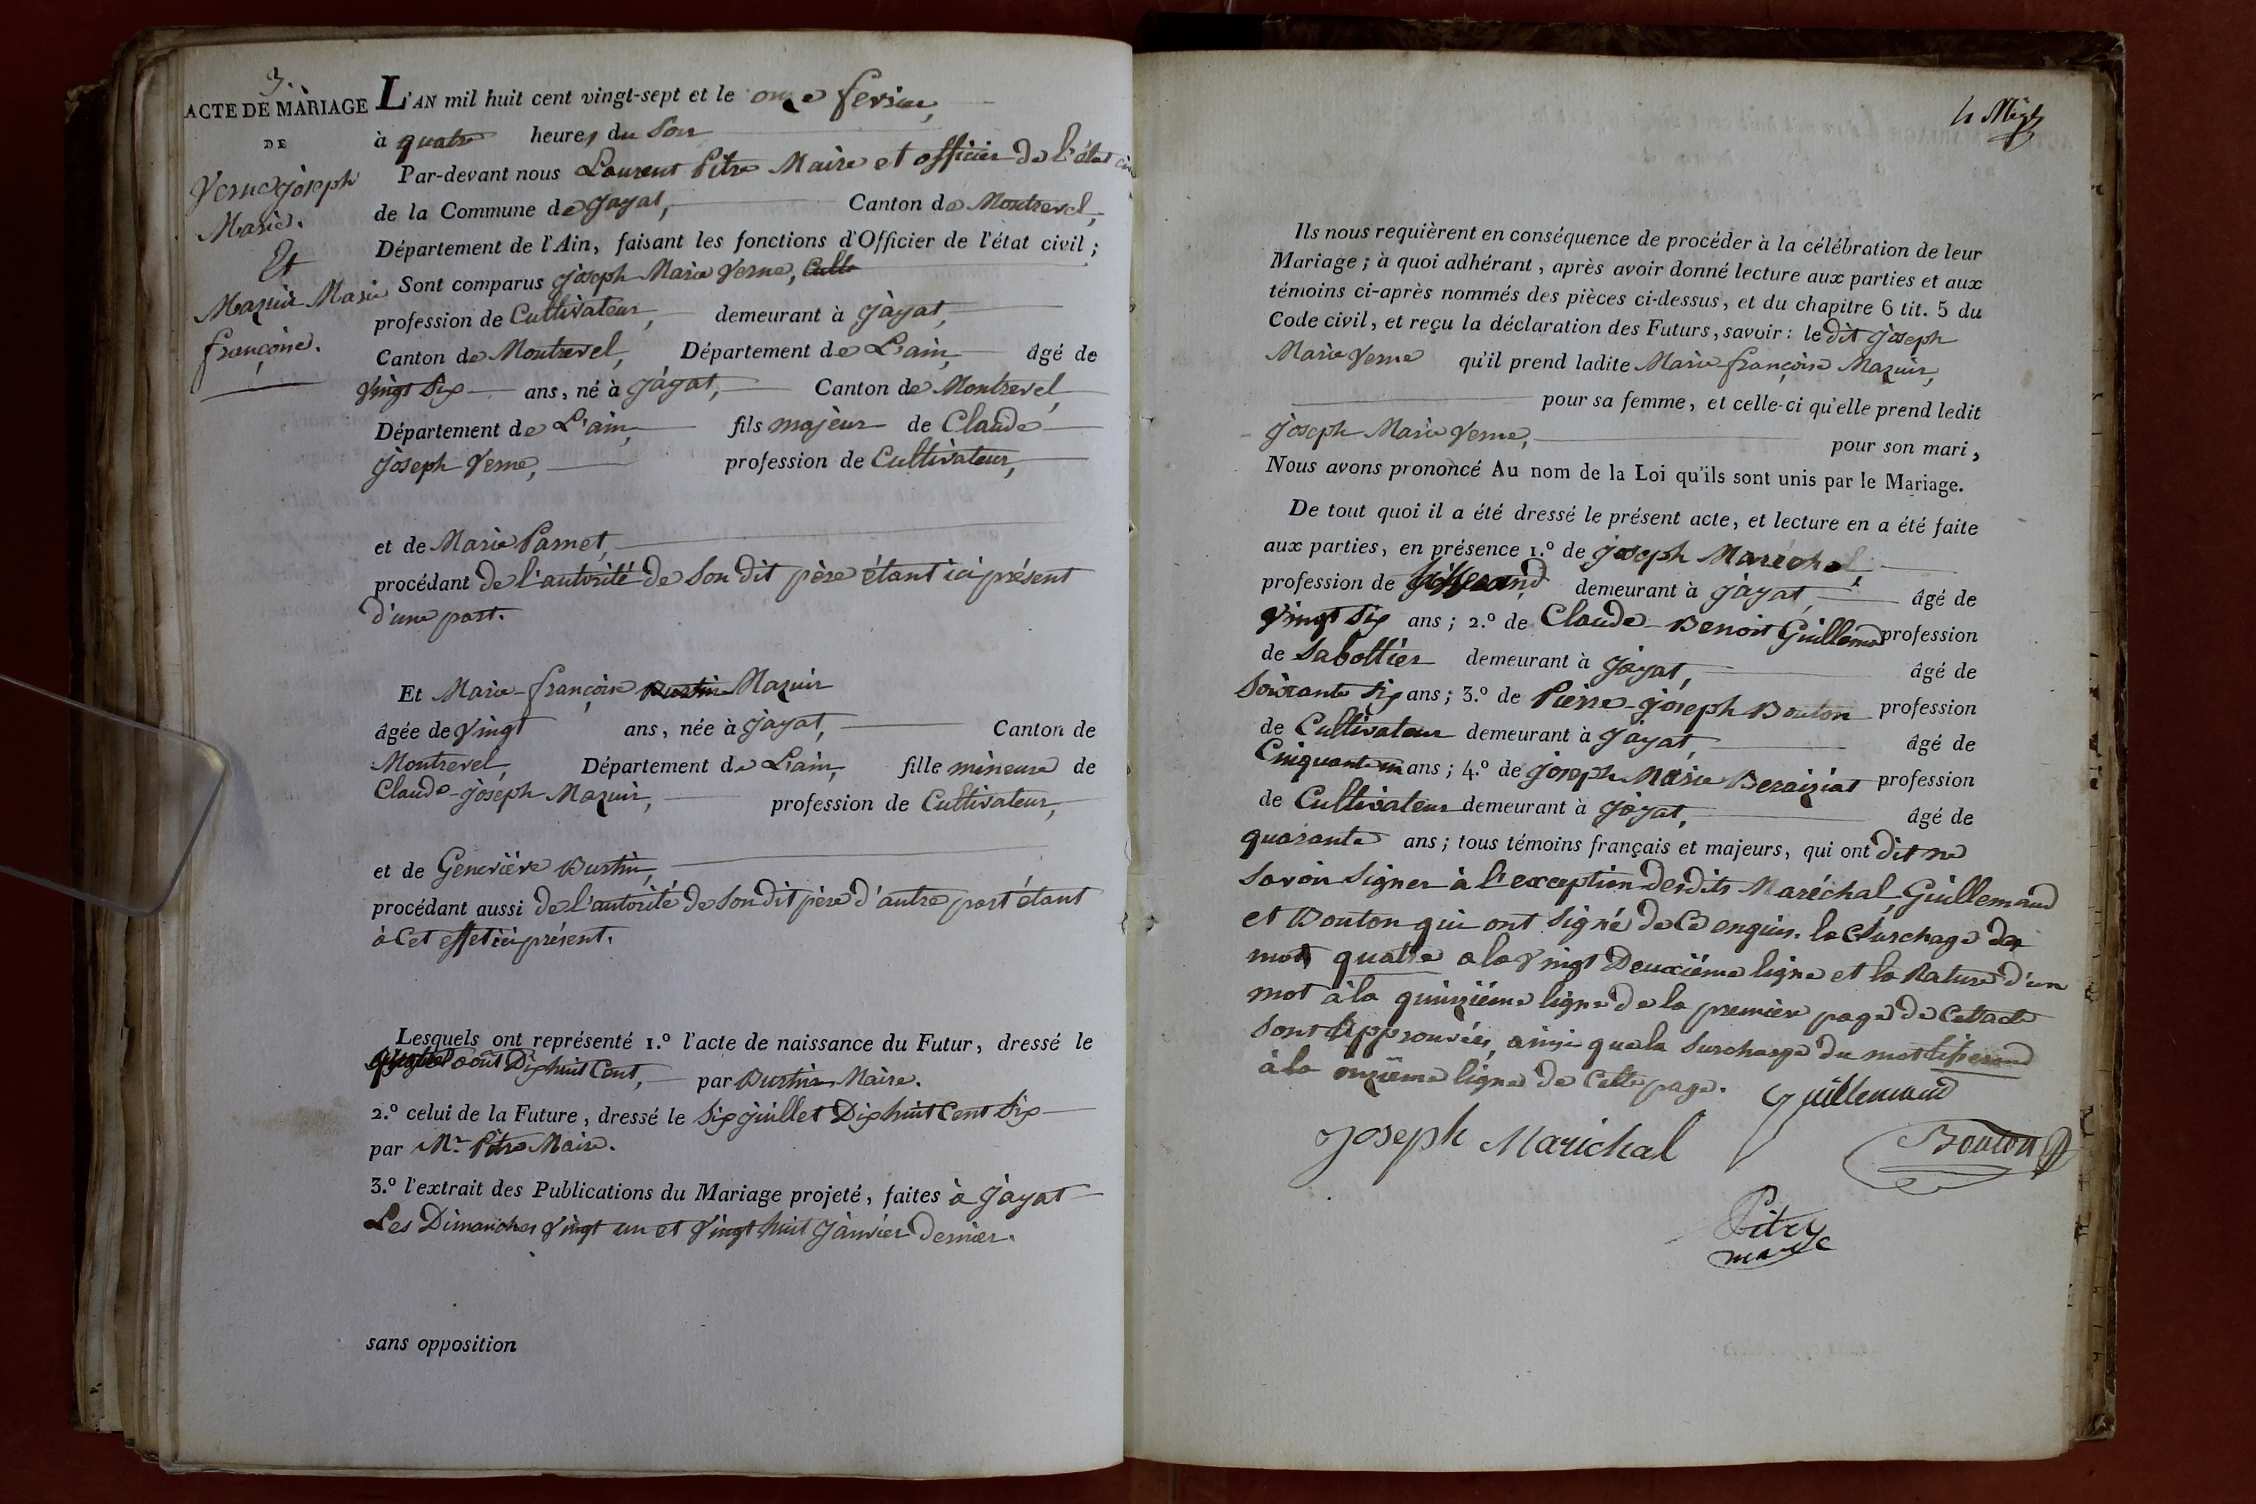 3.
ACTE DE MARIAGE
DE
Verne joseph
Marie.
Et
Mazuir Marie
françoise.
L'AN mil huit cent vingt-sept et le onze fevrier,
à quatre heures du Soir
Par-devant nous Laurent Pitre Maire et officier de l'état civil
de la Commune de Jayat, Canton de Montrevel,
Département de l'Ain, faisant les fonctions d'Officier de l'état civil ;
Sont comparus joseph Marie Verne, Culte
profession de Cultivateur, demeurant à Jayat,
Canton de Montrevel, Département de L'ain, âgé de
Vingt Six ans, né à Jayat, Canton de Montrevel,
Département de L'ain, fils majeur de Claude
joseph Verne, profession de Cultivateur,
et de Marie Parnet,
procédant de l'autorité de Son dit père étant ici présent
d'une part.
Et Marie-françoise Burtin Mazuir
âgée de Vingt ans, née à Jayat, Canton de
Montrevel, Département de L'ain, fille mineure de
Claude-joseph Mazuir, profession de Cultivateur,
et de Geneviève Burtin,
procédant aussi de l'autorité de Son dit père d'autre part étant
à Cet effet ici présent.
Lesquels ont représenté 1.º l'acte de naissance du Futur, dressé le
quatre août Dix huit Cent, par Burtin Maire.
2.º celui de la Future, dressé le Six juillet Dix huit Cent Six
par Mr. Pitre Maire.
3.º l'extrait des Publications du Mariage projeté, faites à Jayat
Les Dimanches Vingt un et Vingt huit Janvier Dernier.
sans opposition
Ils nous requièrent en conséquence de procéder à la célébration de leur
Mariage ; à quoi adhérant, après avoir donné lecture aux parties et aux
témoins ci-après nommés des pièces ci-dessus, et du chapitre 6 tit. 5 du
Code civil, et reçu la déclaration des Futurs, savoir : le dit joseph
Marie Verne qu'il prend ladite Marie françoise Mazuir,
pour sa femme, et celle-ci qu'elle prend ledit
joseph Marie Verne, pour son mari,
Nous avons prononcé Au nom de la Loi qu'ils sont unis par le Mariage.
De tout quoi il a été dressé le présent acte, et lecture en a été faite
aux parties, en présence 1.º de joseph Maréchal,
profession de tisserand demeurant à Jayat, âgé de
Vingt Six ans ; 2.º de Claude-Benoit Guillemaud profession
de Sabottier demeurant à Jayat, âgé de
Soixante Six ans ; 3.º de Pierre-joseph Bouton profession
de Cultivateur demeurant à Jayat, âgé de
Cinquante un ans ; 4.º de joseph Marie Beraiziat profession
de Cultivateur demeurant à Jayat, âgé de
quarante ans ; tous témoins français et majeurs, qui ont dit ne
Savoir Signer à l'exception desdits Maréchal, Guillemaud
et Bouton qui ont Signé de Ce enquis. la Surchage du
mot quatre a la Vingt Deuxième ligne et la Rature d'un
mot à la quinzième ligne de la première page de Cet acte
Sont Approuvées, ainsi que la Surcharge du mot tiserand
à la onzième ligne de Cette page.
Guillemaud
Joseph Marichal
Bouton
Pitre
maire